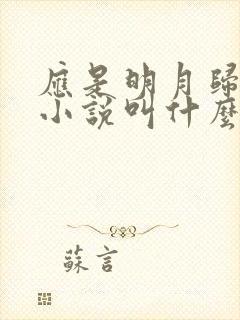 應是明月歸
小說叫什麼
蘇言